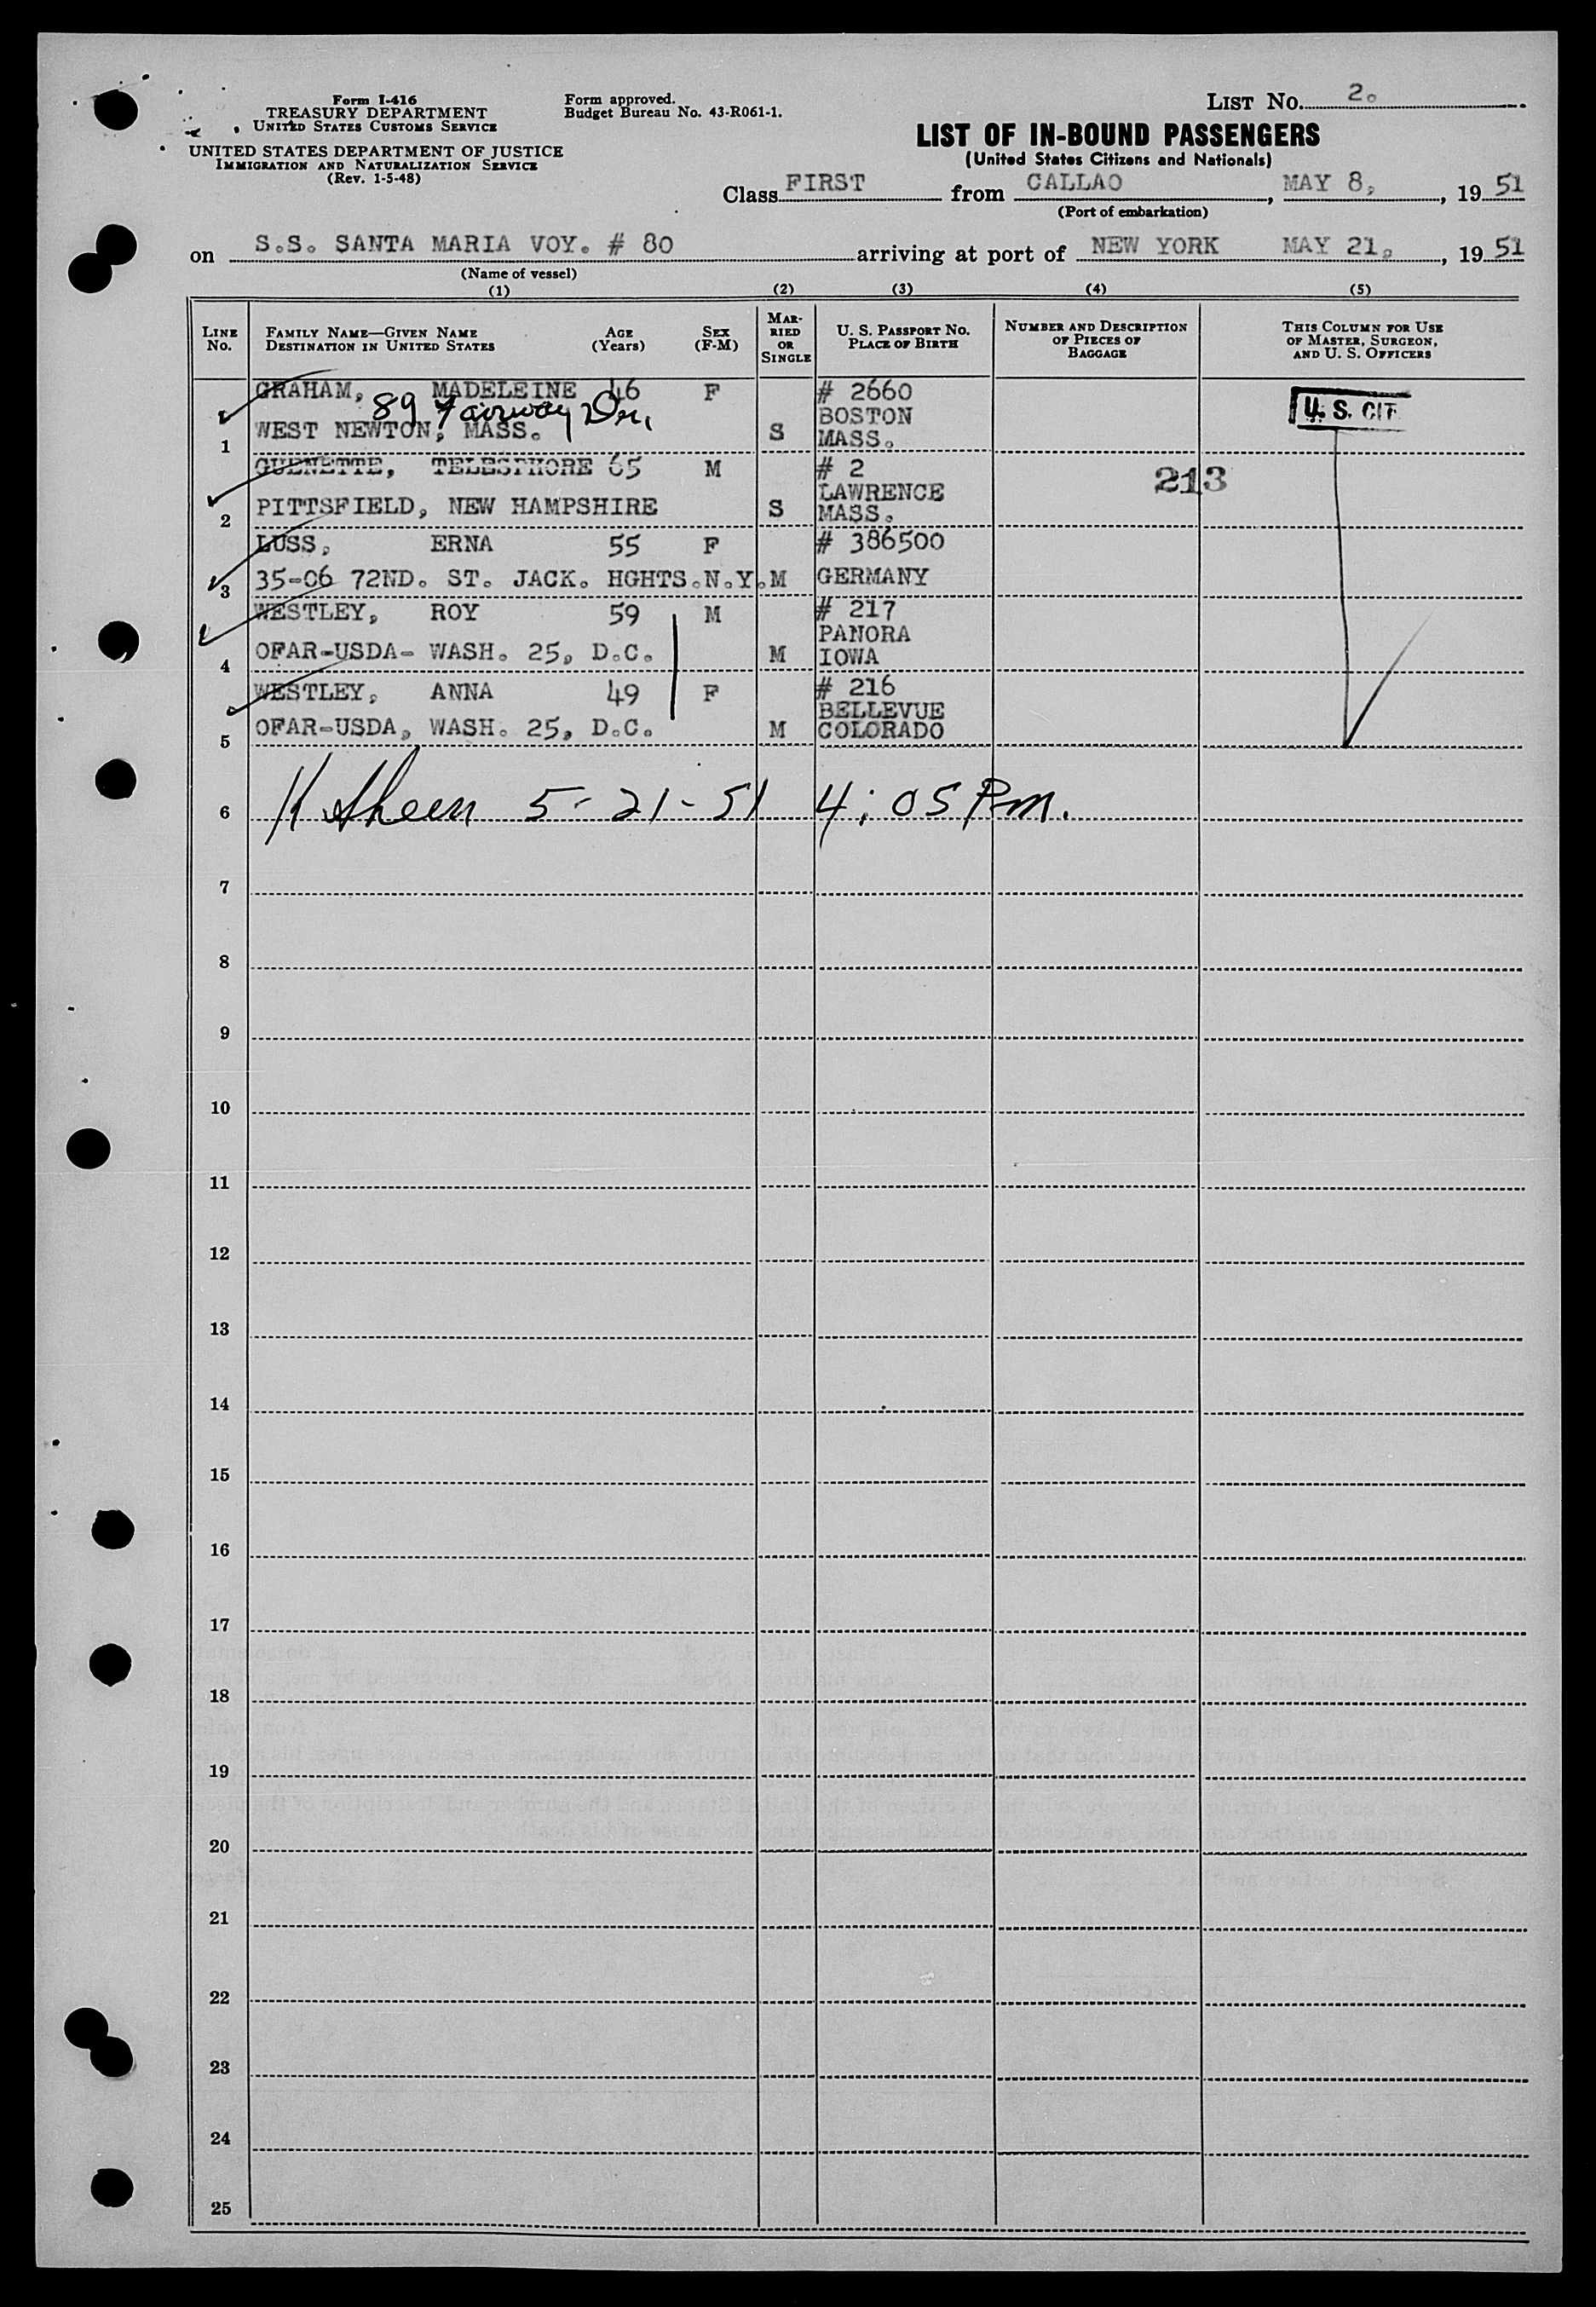 Form I-416
TREASURY DEPARTMENT
UNITED STATES CUSTOMS SERVICE
UNITED STATES DEPARTMENT OF JUSTICE
IMMIGRATION AND NATURALIZATION SERVICE
(Rev. 1-5-48)
Form approved.
Budget Bureau No. 43-R061-1.
LIST NO. 2.
LIST OF IN-BOUND PASSENGERS
(United States Citizens and Nationals)
Class FIRST from CALLAO, MAY 8, 1951
(Port of embarkation)
on S.S. SANTA MARIA VOY. # 80 arriving at port of NEW YORK MAY 21, 1951
(Name of vessel)
(1) (2) (3) (4) (5)
LINE NO.
FAMILY NAME—GIVEN NAME
DESTINATION IN UNITED STATES
AGE (Years)
SEX (F-M)
MARRIED OR SINGLE
U. S. PASSPORT NO.
PLACE OF BIRTH
NUMBER AND DESCRIPTION OF PIECES OF BAGGAGE
THIS COLUMN FOR USE OF MASTER, SURGEON, AND U. S. OFFICERS
GRAHAM, MADELEINE 46 F # 2660
89 Fairway Dr,
BOSTON
1 WEST NEWTON, MASS. S MASS.
U. S. CIT
GUENETTE, TELESPHORE 65 M # 2
213
LAWRENCE
2 PITTSFIELD, NEW HAMPSHIRE S MASS.
LUSS, ERNA 55 F # 386500
3 35-06 72ND. ST. JACK. HGHTS.N.Y. M GERMANY
WESTLEY, ROY 59 M # 217
PANORA
4 OFAR-USDA- WASH. 25, D.C. M IOWA
WESTLEY, ANNA 49 F # 216
BELLEVUE
5 OFAR-USDA, WASH. 25, D.C. M COLORADO
6 K Sheen 5-21-51 4:05 P.m.
7
8
9
10
11
12
13
14
15
16
17
18
19
20
21
22
23
24
25